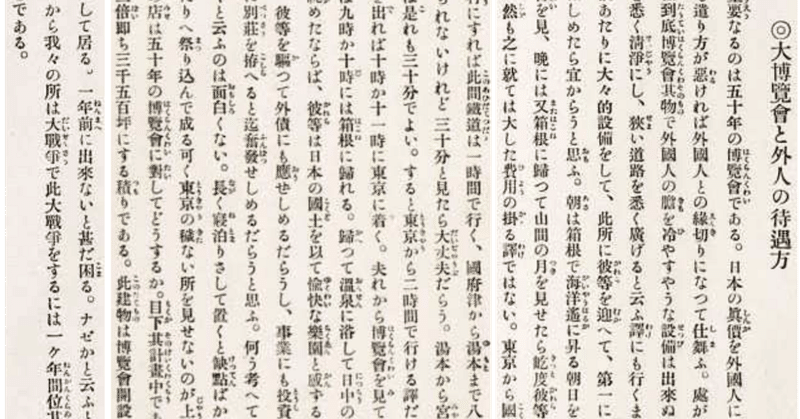 ◎大博覽會と外人の待遇方
重要なるのは五十年の博覽會である。日本の眞價を外國人に
遣り方が惡ければ外國人との緣切りになつて仕舞ふ。處が
到底博覽會其物で外國人の膽を冷やすやうな設備は出來ぬ
悉く清淨にし、狹い道路を悉く廣げると云ふ譯にも行くま
あたりに大々的設備をして、此所に彼等を迎へて、第一に
しめたら宜からうと思ふ。朝は箱根で海洋遙に昇る朝日を
を見、晩には又箱根に歸つて山間の月を見せたら屹度彼等
然も之に就ては大した費用の掛る譯ではない。東京から國
にすれば此間鐵道は一時間で行く、國府津から湯本まで八
られないけれど三十分と見たら大丈夫だらう。湯本から宮
は是れも三十分でよい。すると東京から二時間で行ける譯だ
を出れば十時か十一時に東京に着く。夫れから博覽會を見て
は九時か十時には箱根に歸れる。歸つて溫泉に浴して日中の
眺めたならば、彼等は日本の國土を以て愉快な樂園と感ずる
彼等を驅つて外債にも應せしめるだらうし、事業にも投資
別莊を拵へると迄奮發せしめるだらうと思ふ。何う考へて
と云ふのは面白くない。長く寢泊りさして置くと缺點ばか
たりへ祭り込んで成る可く東京の穢ない所を見せないのが上
の店は五十年の博覽會に對してどうするか。目下其計畫中でも
倍即ち三千五百坪にする積りである。此建物は博覽會開設
して居る。一年前に出來ないと甚だ困る。ナゼかと云ふと
から我々の所は大戰爭で此大戰爭をするには一ケ年間位其
である。